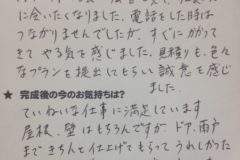 に会いたくなりました。電話をした時は
つながりませんでしたが、すぐにかかって
きて やる気を感じました。見積りも、色々
なプランを提出してもらい 誠意を感じ
ました。
★ 完成後の今のお気持ちは?
ていねいな仕事に満足しています
屋根、壁はもちろんですが、ドア、雨戸
まで きちんと仕上げてもらって うれしかった